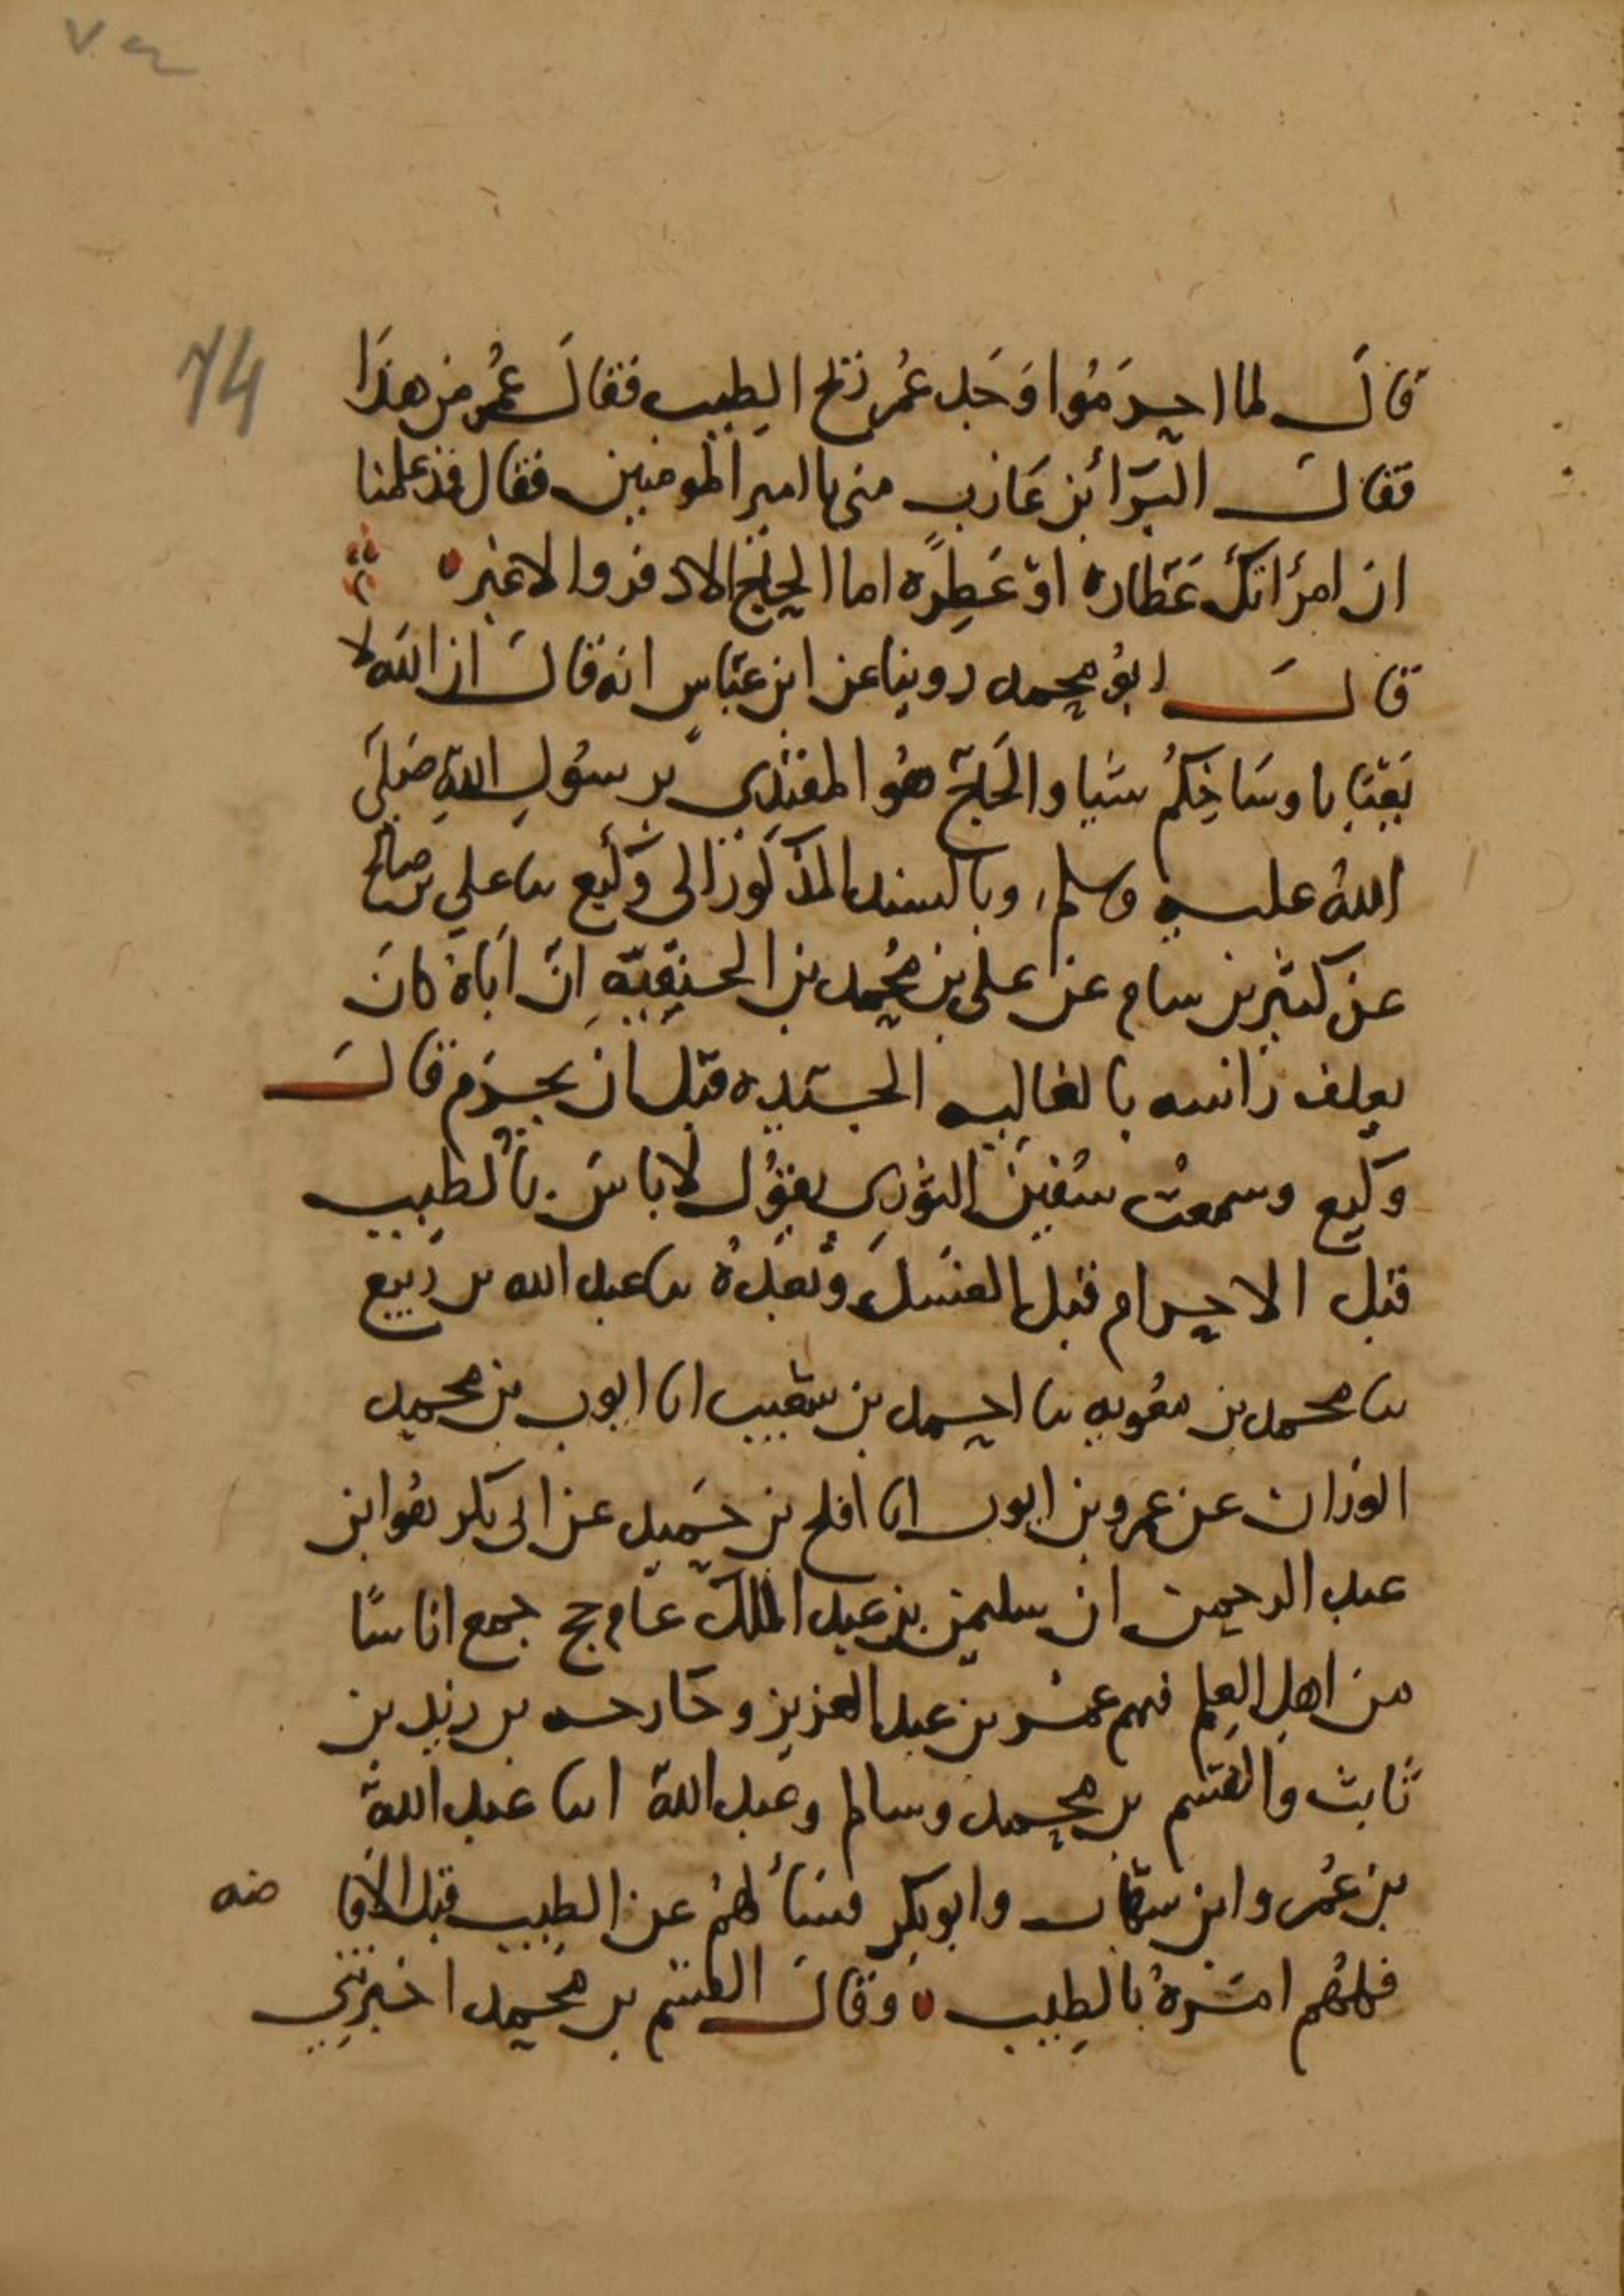 74
قال لما احرموا وجد عمر ريح الطيب فقال عمر من هذا
فقال البرا بن عازب مني يا امير المومنين فقال قد علمنا
ان امرأتك عطارة او عطرة اما الحاج الادفر والاغبر
قال ابو محمد روينا عن ابن عباس انه قال ان الله لا
يعبأ باوساخكم شيا والحاج هو المقتدي برسول الله صلى
الله عليه وسلم، وبالسند المذكور الى وكيع نا علي بن صالح
عن كثير بن سام عن علي بن محمد بن الحنفية ان اباه كان
يغلف راسه بالغالية الجيدة قبل ان يحرم قال
وكيع وسمعت سفين الثوري يقول لا باس بالطيب
قبل الاحرام قبل الغسل وبعده نا عبد الله بن ربيع
نا محمد بن معوية نا احمد بن شعيب انا ايوب بن محمد
الوزان عن عمرو بن ايوب انا افلح بن حميد عن ابي بكر هو ابن
عبد الرحمن ان سليمن بن عبد الملك عام حج جمع اناسا
من اهل العلم فيهم عمر بن عبد العزيز وخارجة بن زيد بن
ثابت والقسم بن محمد وسالم وعبد الله ابنا عبد الله
بن عمر وابن شهاب وابو بكر فسألهم عن الطيب قبل الافا ضه
فكلهم امره بالطيب وقال القسم بن محمد اخبرتني